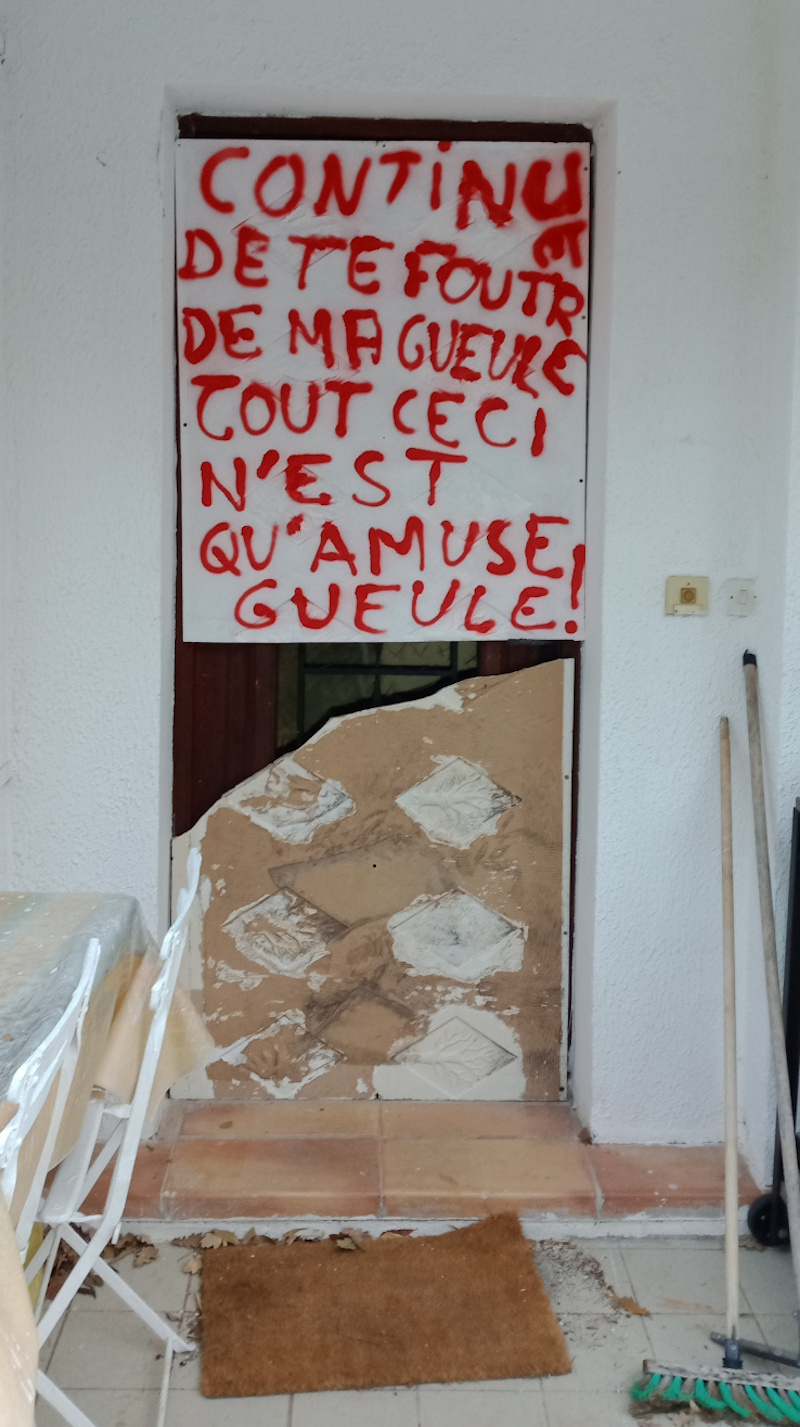 CONTINUE
DE TE FOUTR
DE MA GUEULE
TOUT CECI
N'EST
QU'AMUSE
GUEULE!